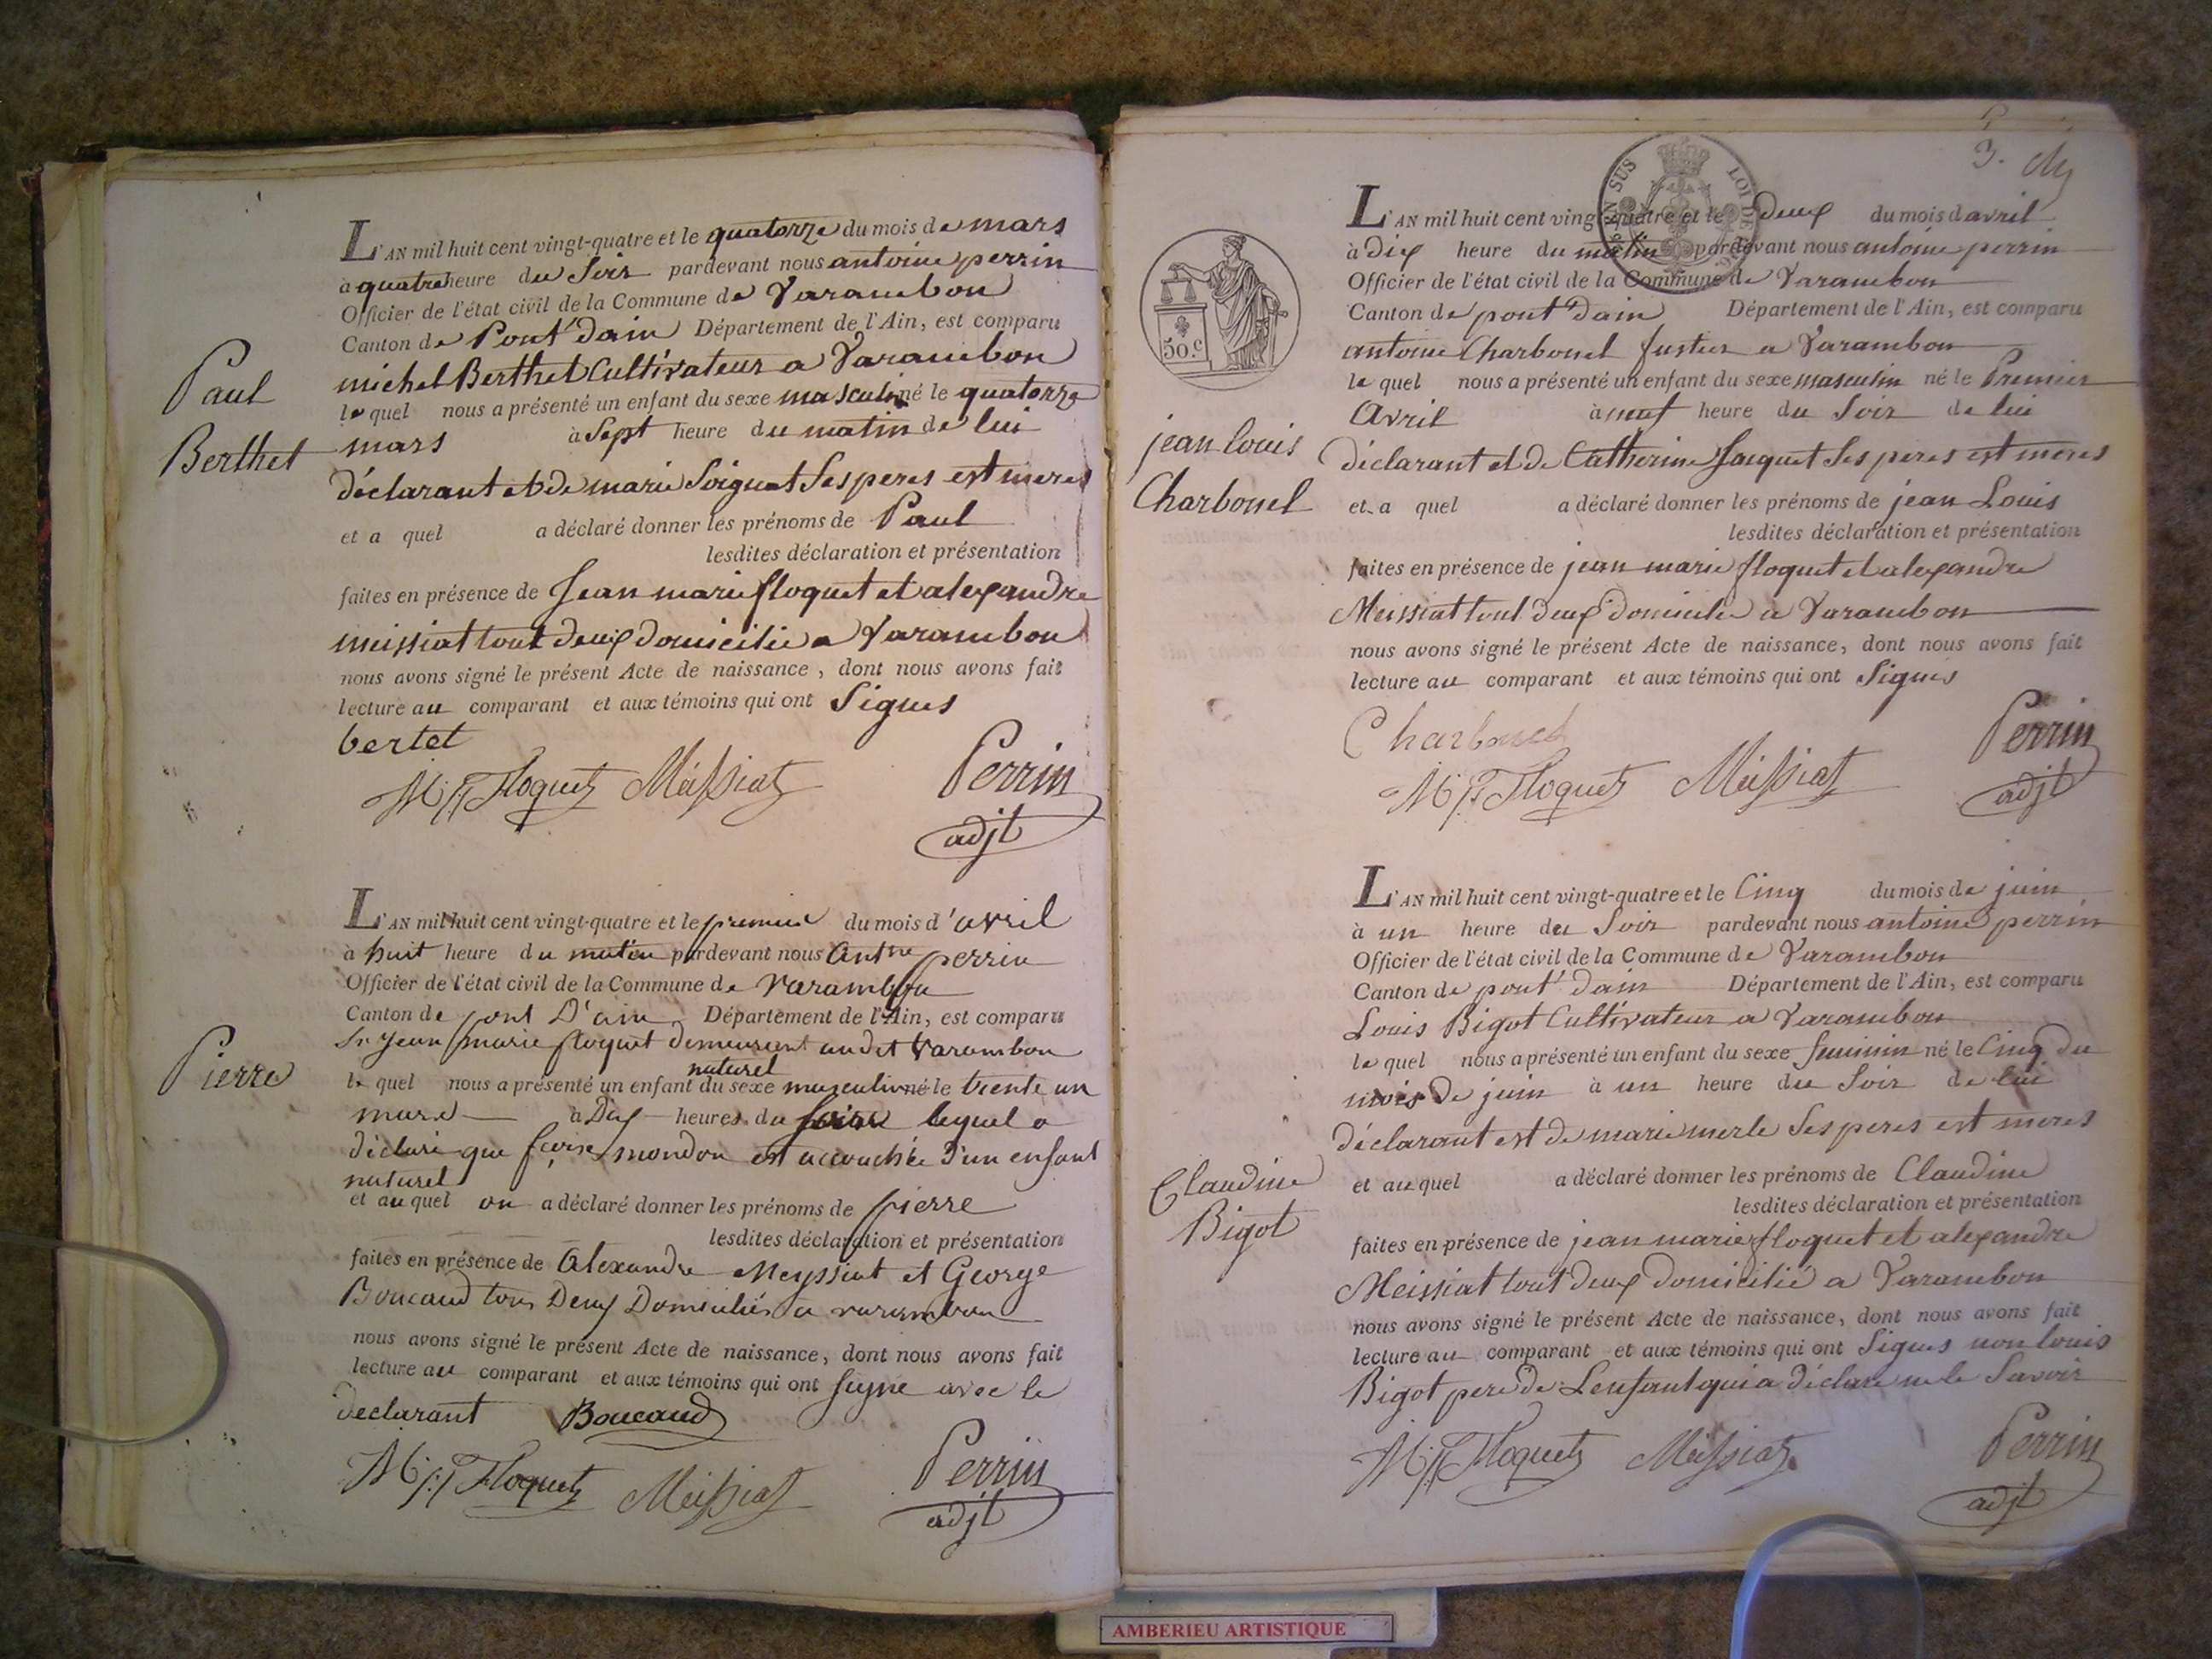 Paul
Berthet
L'AN mil huit cent vingt-quatre et le quatorze du mois de mars
à quatre heure du Soir pardevant nous antoine perrin
Officier de l'état civil de la Commune de Varambon
Canton de Pont d'ain Département de l'Ain, est comparu
michel Berthet Cultivateur a Varambon
le quel nous a présenté un enfant du sexe masculin né le quatorze
mars à Sept heure du matin de lui
déclarant et de marie Soiguat Ses peres est meres
et a quel a déclaré donner les prénoms de Paul
lesdites déclaration et présentation
faites en présence de Jean marie floquet et alexandre
meissiat tout deux domicilié a Varambon
nous avons signé le présent Acte de naissance, dont nous avons fait
lecture au comparant et aux témoins qui ont Signes
bertet
Floquet Meissiat Perrin
adjt
Pierre
L'AN mil huit cent vingt-quatre et le premier du mois d'avril
à huit heure du matin pardevant nous Antne perrin
Officier de l'état civil de la Commune de Varambon
Canton de pont D'ain Département de l'Ain, est comparu
Sr Jean marie floquet demeurant audit Varambon
naturel
le quel nous a présenté un enfant du sexe masculin né le trente un
mars à Dix heures du soir lequel a
déclaré que fçoise mondon est accouchée d'un enfant
naturel
et au quel on a déclaré donner les prénoms de pierre
lesdites déclaration et présentation
faites en présence de Alexandre Meyssiat et George
Boucaud tous Deux Domiciliés a varambon
nous avons signé le présent Acte de naissance, dont nous avons fait
lecture au comparant et aux témoins qui ont signé avec le
declarant Boucaud
Floquet Meissiat Perrin
adjt
3.
SUS LOI DE
50.c
jean louis
Charbonel
L'AN mil huit cent vingt-quatre et le deux du mois d avril
à dix heure du matin pardevant nous antoine perrin
Officier de l'état civil de la Commune de Varambon
Canton de pont d'ain Département de l'Ain, est comparu
antoine Charbonel fustier a Varambon
le quel nous a présenté un enfant du sexe masculin né le Premier
Avril à neuf heure du Soir de lui
déclarant et de Catherine Jacquet Ses peres est meres
et a quel a déclaré donner les prénoms de jean Louis
lesdites déclaration et présentation
faites en présence de jean marie floquet et alexandre
Meissiat tout deux domicilié a Varambon
nous avons signé le présent Acte de naissance, dont nous avons fait
lecture au comparant et aux témoins qui ont Signes
Charbonel
Floquet Meissiat Perrin
adjt
Claudine
Bigot
L'AN mil huit cent vingt-quatre et le Cinq du mois de juin
à un heure du Soir pardevant nous antoine perrin
Officier de l'état civil de la Commune de Varambon
Canton de pont d'ain Département de l'Ain, est comparu
Louis Bigot Cultivateur a Varambon
le quel nous a présenté un enfant du sexe feminin né le Cinq du
mois de juin à un heure du Soir de lui
déclarant est de marie merle Ses peres est meres
et au quel a déclaré donner les prénoms de Claudine
lesdites déclaration et présentation
faites en présence de jean marie floquet et alexandre
Meissiat tout deux domicilié a Varambon
nous avons signé le présent Acte de naissance, dont nous avons fait
lecture au comparant et aux témoins qui ont Signes non louis
Bigot pere de Lenfant qui a déclaré ne le Savoir
Floquet Meissiat Perrin
adjt
AMBERIEU ARTISTIQUE